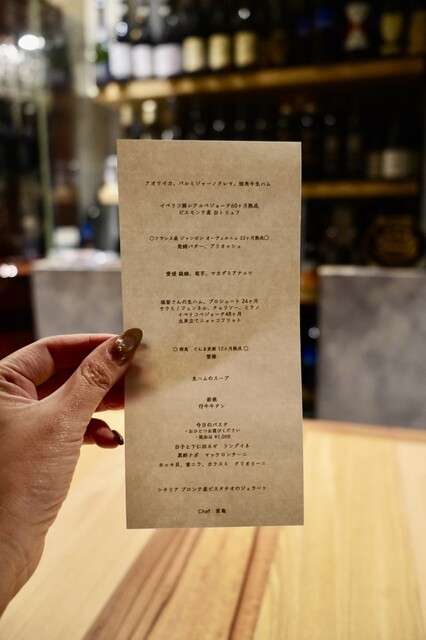 アオリイカ、パルミジャーノクレマ、短角牛生ハム
イベリコ豚レアルベジョータ60ヶ月熟成
ピエモンテ産 白トリュフ
〇フランス産 ジャンボン オーヴェルニュ 22ヶ月熟成〇
発酵バター、ブリオッシュ
愛媛 真鯛、菊芋、マカダミアナッツ
さんの生ハム、プロシュート 24ヶ月
サラミ/フェンネル、チョリソー、ミラノ
イベリコベジョータ48ヶ月
出来立てニョッコフリット
〇 群馬 ぐんま産豚 12ヶ月熟成 〇
生ハムのスープ
薪焼
仔牛牛タン
今日のパスタ
・おひとつお選びください
・追加は ¥1,000
白子と下仁田ネギ リングイネ
ナポ マッケロンチーニ
ホッキ貝、黄ニラ、カラスミ タリオリーニ
シチリア ブロンテ産ピスタチオのジェラート
Chef